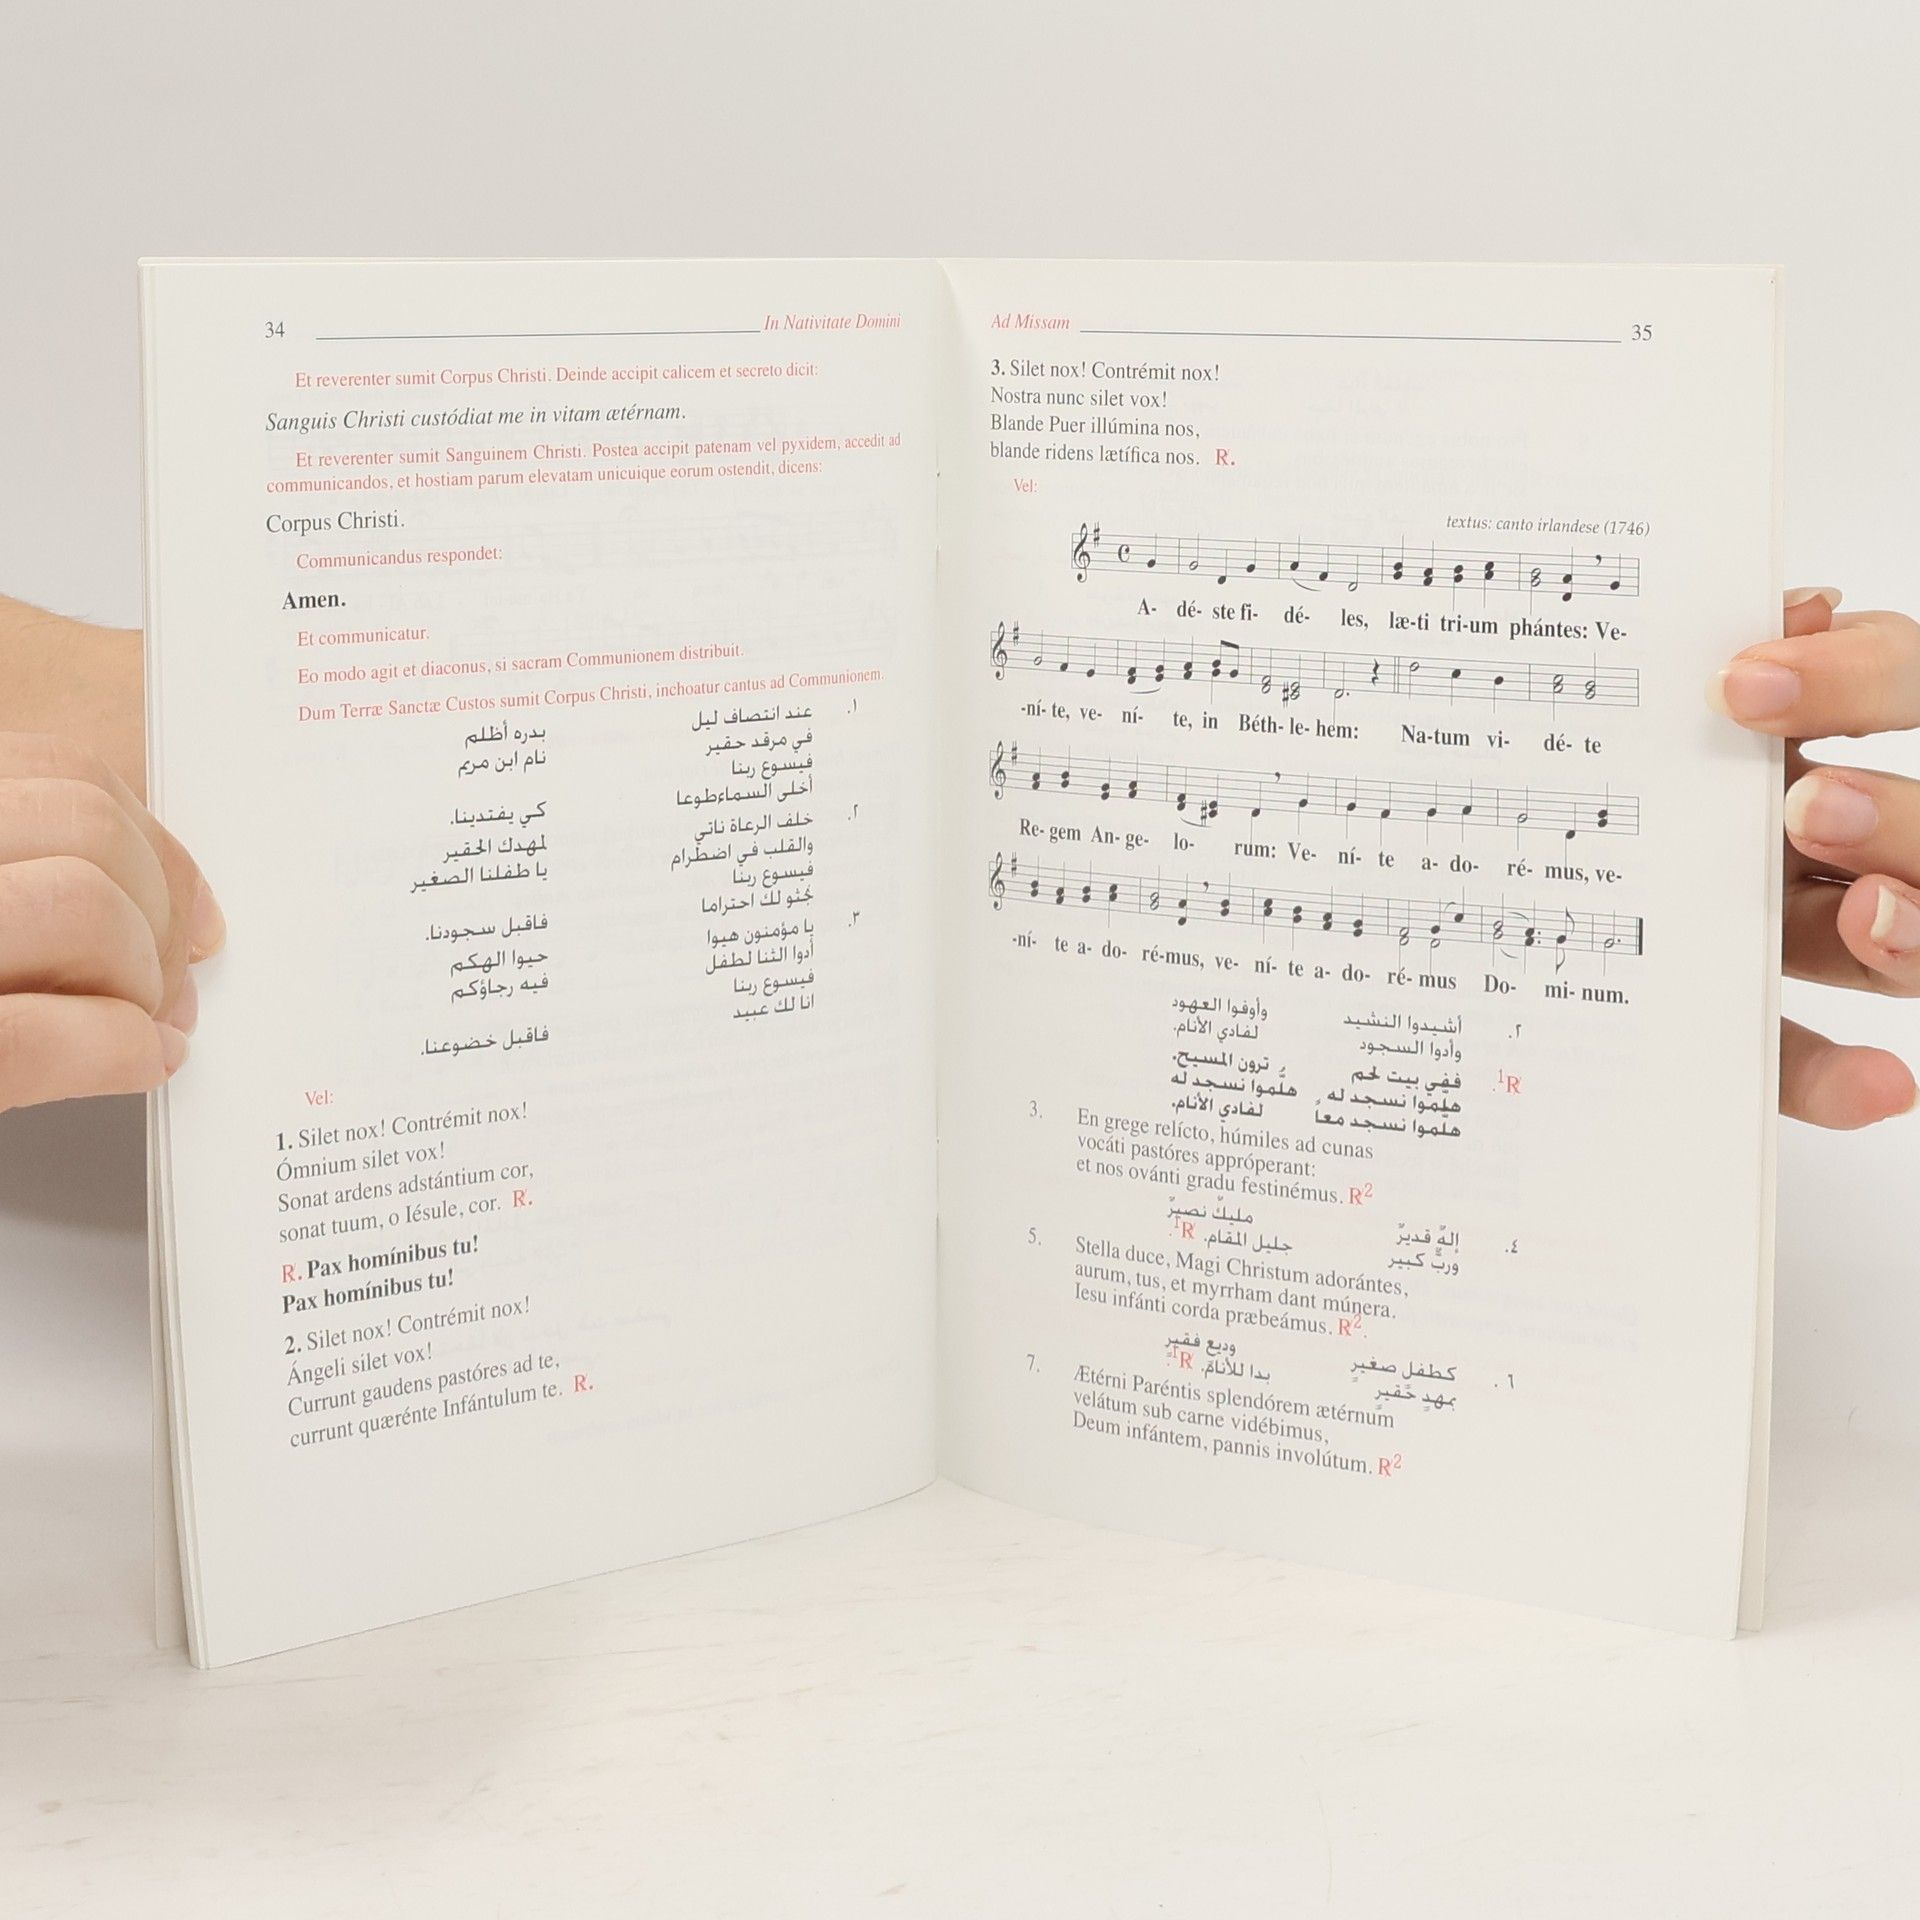 34 In Nativitate Domini
Et reverenter sumit Corpus Christi. Deinde accipit calicem et secreto dicit:
Sanguis Christi custódiat me in vitam ætérnam.
Et reverenter sumit Sanguinem Christi. Postea accipit patenam vel pyxidem, accedit ad
communicandos, et hostiam parum elevatam unicuique eorum ostendit, dicens:
Corpus Christi.
Communicandus respondet:
Amen.
Et communicatur.
Eo modo agit et diaconus, si sacram Communionem distribuit.
Dum Terræ Sanctæ Custos sumit Corpus Christi, inchoatur cantus ad Communionem.
١. عند انتصاف ليل بدره أظلم
في مرقد حقير نام ابن مريم
فيسوع ربنا
أخلى السماءطوعا كي يفتدينا.
٢. خلف الرعاة ناتي لمهدك الحقير
والقلب في اضطرام يا طفلنا الصغير
فيسوع ربنا
نجثو لك احتراما فاقبل سجودنا.
٣. يا مؤمنون هيوا حيوا الهكم
أدوا الثنا لطفل فيه رجاؤكم
فيسوع ربنا
انا لك عبيد فاقبل خضوعنا.
Vel:
1. Silet nox! Contrémit nox!
Ómnium silet vox!
Sonat ardens adstántium cor,
sonat tuum, o Iésule, cor. ℟.
℟. Pax homínibus tu!
Pax homínibus tu!
2. Silet nox! Contrémit nox!
Ángeli silet vox!
Currunt gaudens pastóres ad te,
currunt quærénte Infántulum te. ℟.
Ad Missam 35
3. Silet nox! Contrémit nox!
Nostra nunc silet vox!
Blande Puer illúmina nos,
blande ridens lætífica nos. ℟.
Vel:
textus: canto irlandese (1746)
A- dé- ste fi- dé- les, læ-ti tri-um phántes: Ve-
-ní- te, ve- ní- te, in Béth- le- hem: Na-tum vi- dé- te
Re- gem An- ge- lo- rum: Ve- ní- te a- do- ré- mus, ve-
-ní- te a- do- ré-mus, ve- ní- te a- do- ré- mus Do- mi- num.
٢. أشيدوا النشيد وأوفوا العهود
وأدوا السجود لفادي الأنام.
℟1. ففي بيت لحم ترون المسيح.
هلّموا نسجد له هلّموا نسجد له
هلّموا نسجد معاً لفادي الأنام.
3. En grege relícto, húmiles ad cunas
vocáti pastóres appróperant:
et nos ovánti gradu festinémus. ℟2
٤. إلهٌ قديرٌ مليكٌ نصيرٌ
وربٌّ كبير جليل المقام. ℟1.
5. Stella duce, Magi Christum adorántes,
aurum, tus, et myrrham dant múnera.
Iesu infánti corda præbeámus. ℟2.
٦. كطفل صغيرٍ وديع فقيرٍ
بمهدٍ حقيرٍ بدا للأنام. ℟1.
7. Ætérni Paréntis splendórem ætérnum
velátum sub carne vidébimus,
Deum infántem, pannis involútum. ℟2